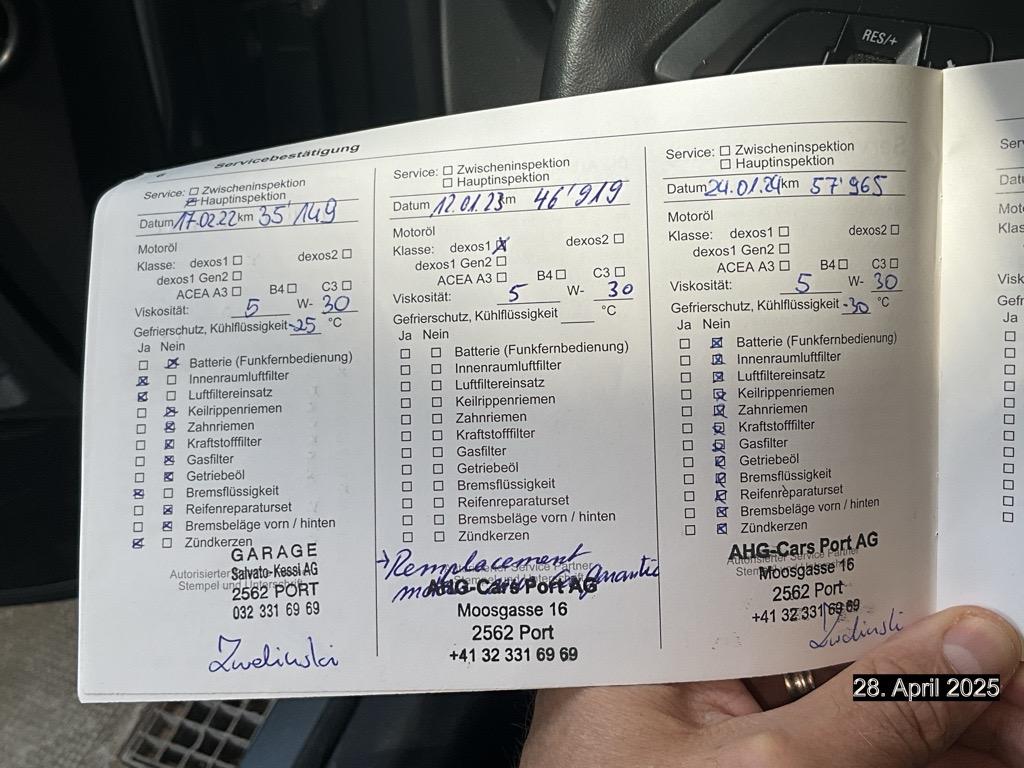 RES/+
Servicebestätigung
Service: Zwischeninspektion
Hauptinspektion
Datum 17.02.22 km 35'149
Motoröl
Klasse: dexos1 dexos2
dexos1 Gen2
ACEA A3 B4 C3
Viskosität: 5 W- 30
Gefrierschutz, Kühlflüssigkeit -25 °C
Ja Nein
Batterie (Funkfernbedienung)
Innenraumluftfilter
Luftfiltereinsatz
Keilrippenriemen
Zahnriemen
Kraftstofffilter
Gasfilter
Getriebeöl
Bremsflüssigkeit
Reifenreparaturset
Bremsbeläge vorn / hinten
Zündkerzen
GARAGE
Autorisierter
Salvato-Kessi AG
Stempel und Unterschrift
2562 PORT
032 331 69 69
Zwelinski
Service: Zwischeninspektion
Hauptinspektion
Datum 12.01.23 km 46'919
Motoröl
Klasse: dexos1 dexos2
dexos1 Gen2
ACEA A3 B4 C3
Viskosität: 5 W- 30
Gefrierschutz, Kühlflüssigkeit °C
Ja Nein
Batterie (Funkfernbedienung)
Innenraumluftfilter
Luftfiltereinsatz
Keilrippenriemen
Zahnriemen
Kraftstofffilter
Gasfilter
Getriebeöl
Bremsflüssigkeit
Reifenreparaturset
Bremsbeläge vorn / hinten
Zündkerzen
→Remplacement
Service Partner
Stempel und
Garantie
AHG-Cars Port AG
Moosgasse 16
2562 Port
+41 32 331 69 69
Service: Zwischeninspektion
Hauptinspektion
Datum 24.01.24 km 57'965
Motoröl
Klasse: dexos1 dexos2
dexos1 Gen2
ACEA A3 B4 C3
Viskosität: 5 W- 30
Gefrierschutz, Kühlflüssigkeit -30 °C
Ja Nein
Batterie (Funkfernbedienung)
Innenraumluftfilter
Luftfiltereinsatz
Keilrippenriemen
Zahnriemen
Kraftstofffilter
Gasfilter
Getriebeöl
Bremsflüssigkeit
Reifenreparaturset
Bremsbeläge vorn / hinten
Zündkerzen
AHG-Cars Port AG
Autorisierter Service Partner
Stempel und
Moosgasse 16
2562 Port
+41 32 331 69 69
Zwelinski
Ja
28. April 2025